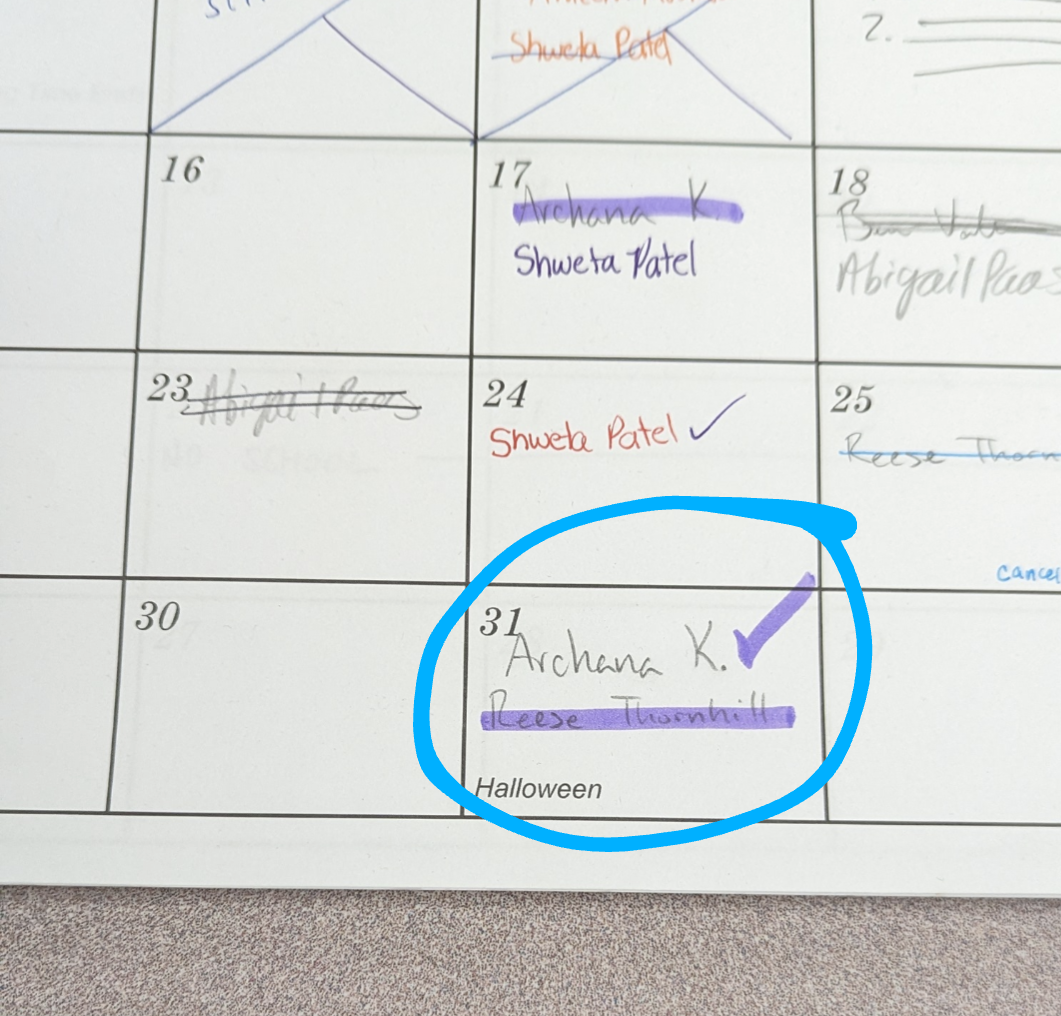 Shweta Patel
2.
16
17
Archana K.
Shweta Patel
18
Abigail Paas
23
Abigail Paas
24
Shweta Patel ✓
25
Reese Thorn
cancel
30
31
Archana K. ✓
Reese Thornhill
Halloween